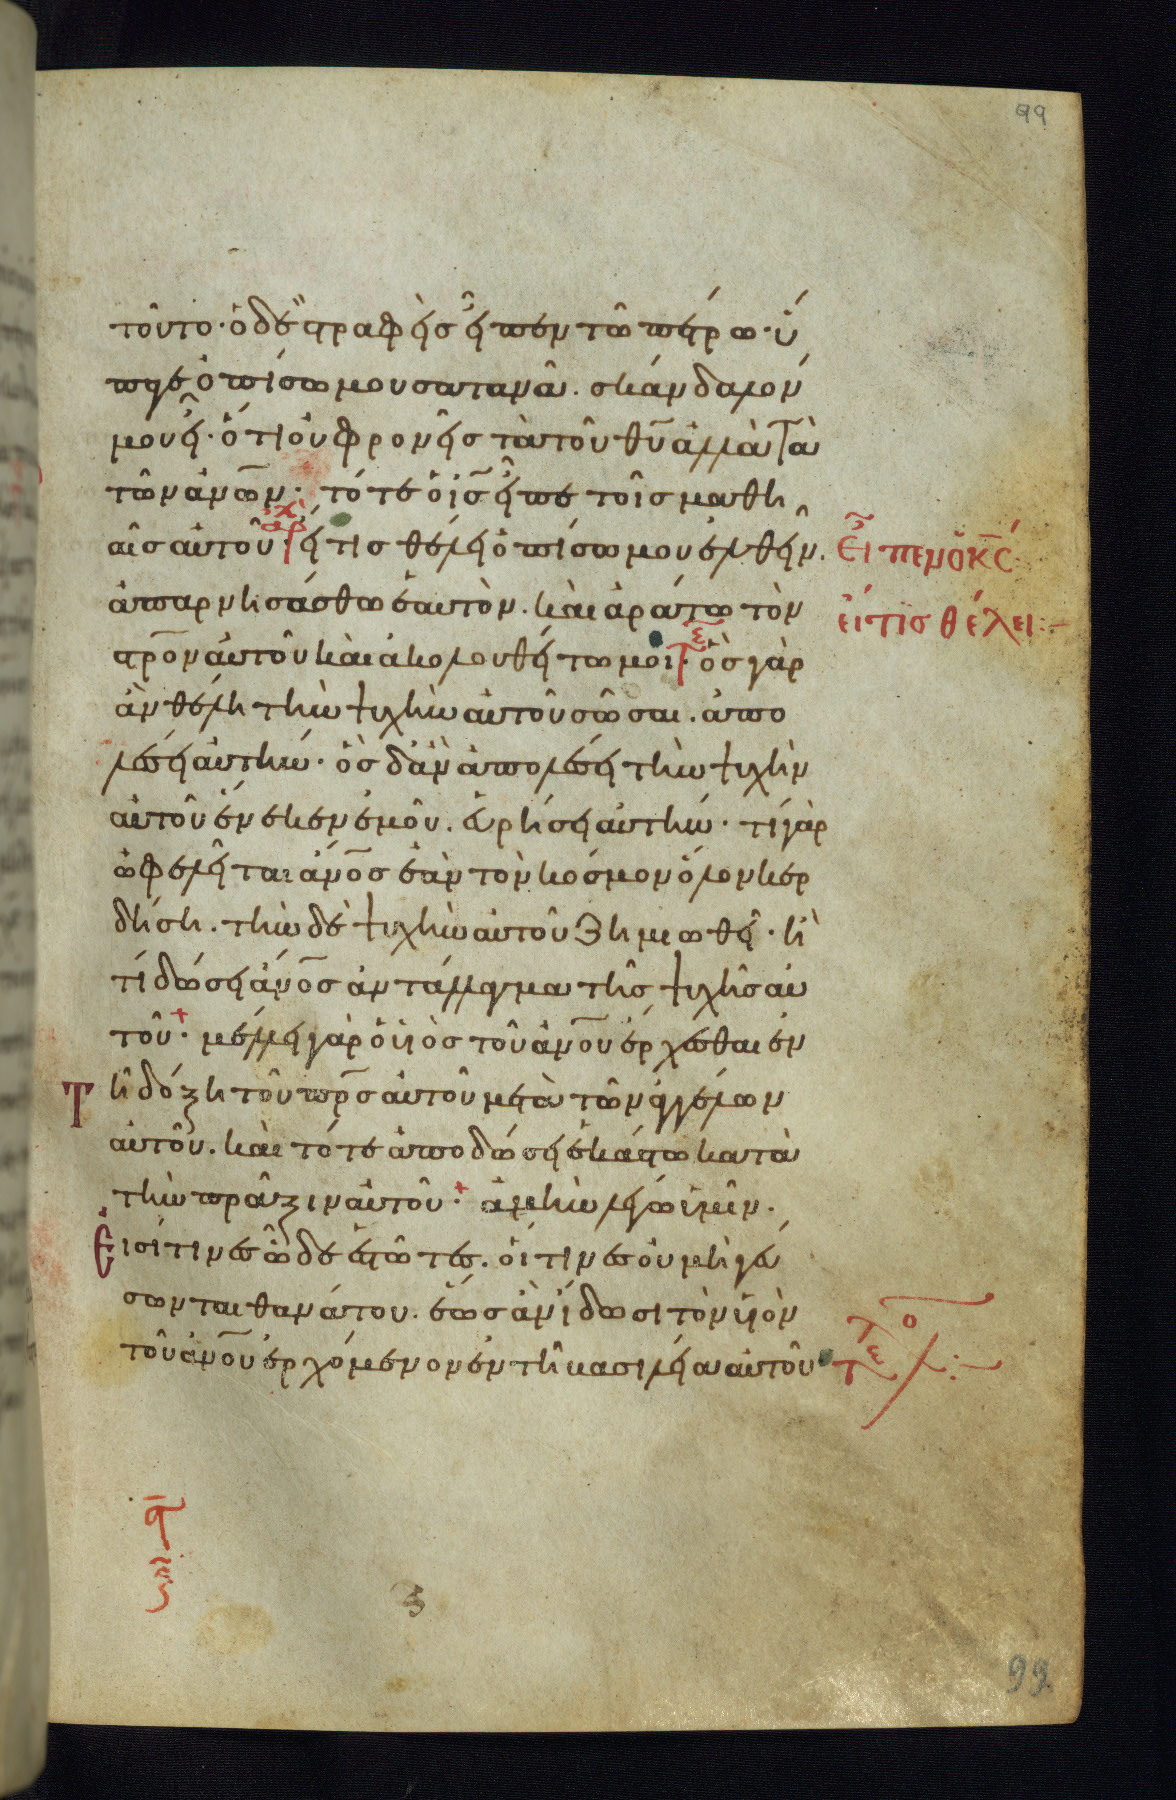 99
τοῦτο· ὁ δὲ στραφεὶς εἶπεν τῶ πέτρω· ὕ
παγε ὀπίσω μου σατανᾶ. σκάνδαλόν
μου εἶ· ὅτι οὐ φρονεῖς τὰ τοῦ θῡ ἀλλὰ τὰ
τῶν ἀνῶν· τότε ὁ ις̄ εἶπε τοῖς μαθη
αῖς αὐτοῦ εἴ τις θέλει ὀπίσω μου ἐλθεῖν.
ἀρχ
Εἶπεν ὁ κς̄
ἀπαρνησάσθω ἑαυτὸν. καὶ ἀράτω τὸν
εἴ τις θέλει :-
στρ̄ον αὐτοῦ καὶ ἀκολουθείτω μοι· ὃς γὰρ
ἂν θέλη τὴν ψυχὴν αὐτοῦ σῶσαι. ἀπο
λέσει αὐτήν· ὃς δ' ἂν ἀπολέσει τὴν ψυχὴν
αὐτοῦ ἕνεκεν ἐμοῦ. εὑρήσει αὐτήν· τί γὰρ
ὠφελεῖται ἄνο̄ς ἐὰν τὸν κόσμον ὅλον κερ
δήση. τὴν δὲ ψυχὴν αὐτοῦ ζημιωθεῖ· ἢ
τί δώσει ἄνο̄ς ἀντάλλαγμα τῆς ψυχῆς αὐ
τοῦ· μέλλει γὰρ ὁ υἱὸς τοῦ ἀνο̄υ ἔρχεσθαι ἐν
τῆ δόξη τοῦ πρ̄ς αὐτοῦ μετὰ τῶν ἀγγέλων
αὐτοῦ. καὶ τότε ἀποδώσει ἑκάστω κατὰ
τὴν πρᾶξιν αὐτοῦ· ἀμὴν λέγω ὑμῖν.
Εἰσί τινες ὧδε ἑστῶτες. οἵτινες οὐ μὴ γεύ
σωνται θανάτου. ἕως ἂν ἴδωσι τὸν υἱὸν
τοῦ ἀνο̄υ ἐρχόμενον ἐν τῆ βασιλεία αὐτοῦ
τελ :-
99